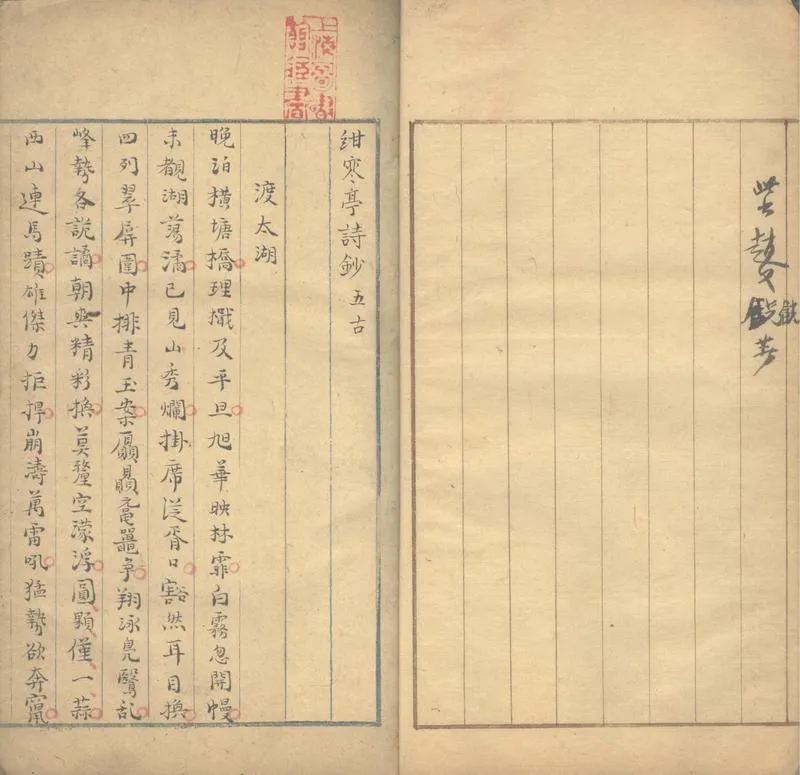 上海圖書館藏書
紺寒亭詩鈔 五古
渡太湖
晚泊橫塘橋理檝及平旦旭華映林霏白霧忽開幔
未覩湖蕩潏已見山秀爛掛席從胥口豁然耳目換
四列翠屏圍中排青玉案屭贔黿鼉爭翔泳鳧鷖乱
峰勢各詭譎朝與精彩換莫釐空濛浮圓顆僅一蒜
西山連馬蹟雄傑力拒捍崩濤萬雷吼猛勢欲奔竄